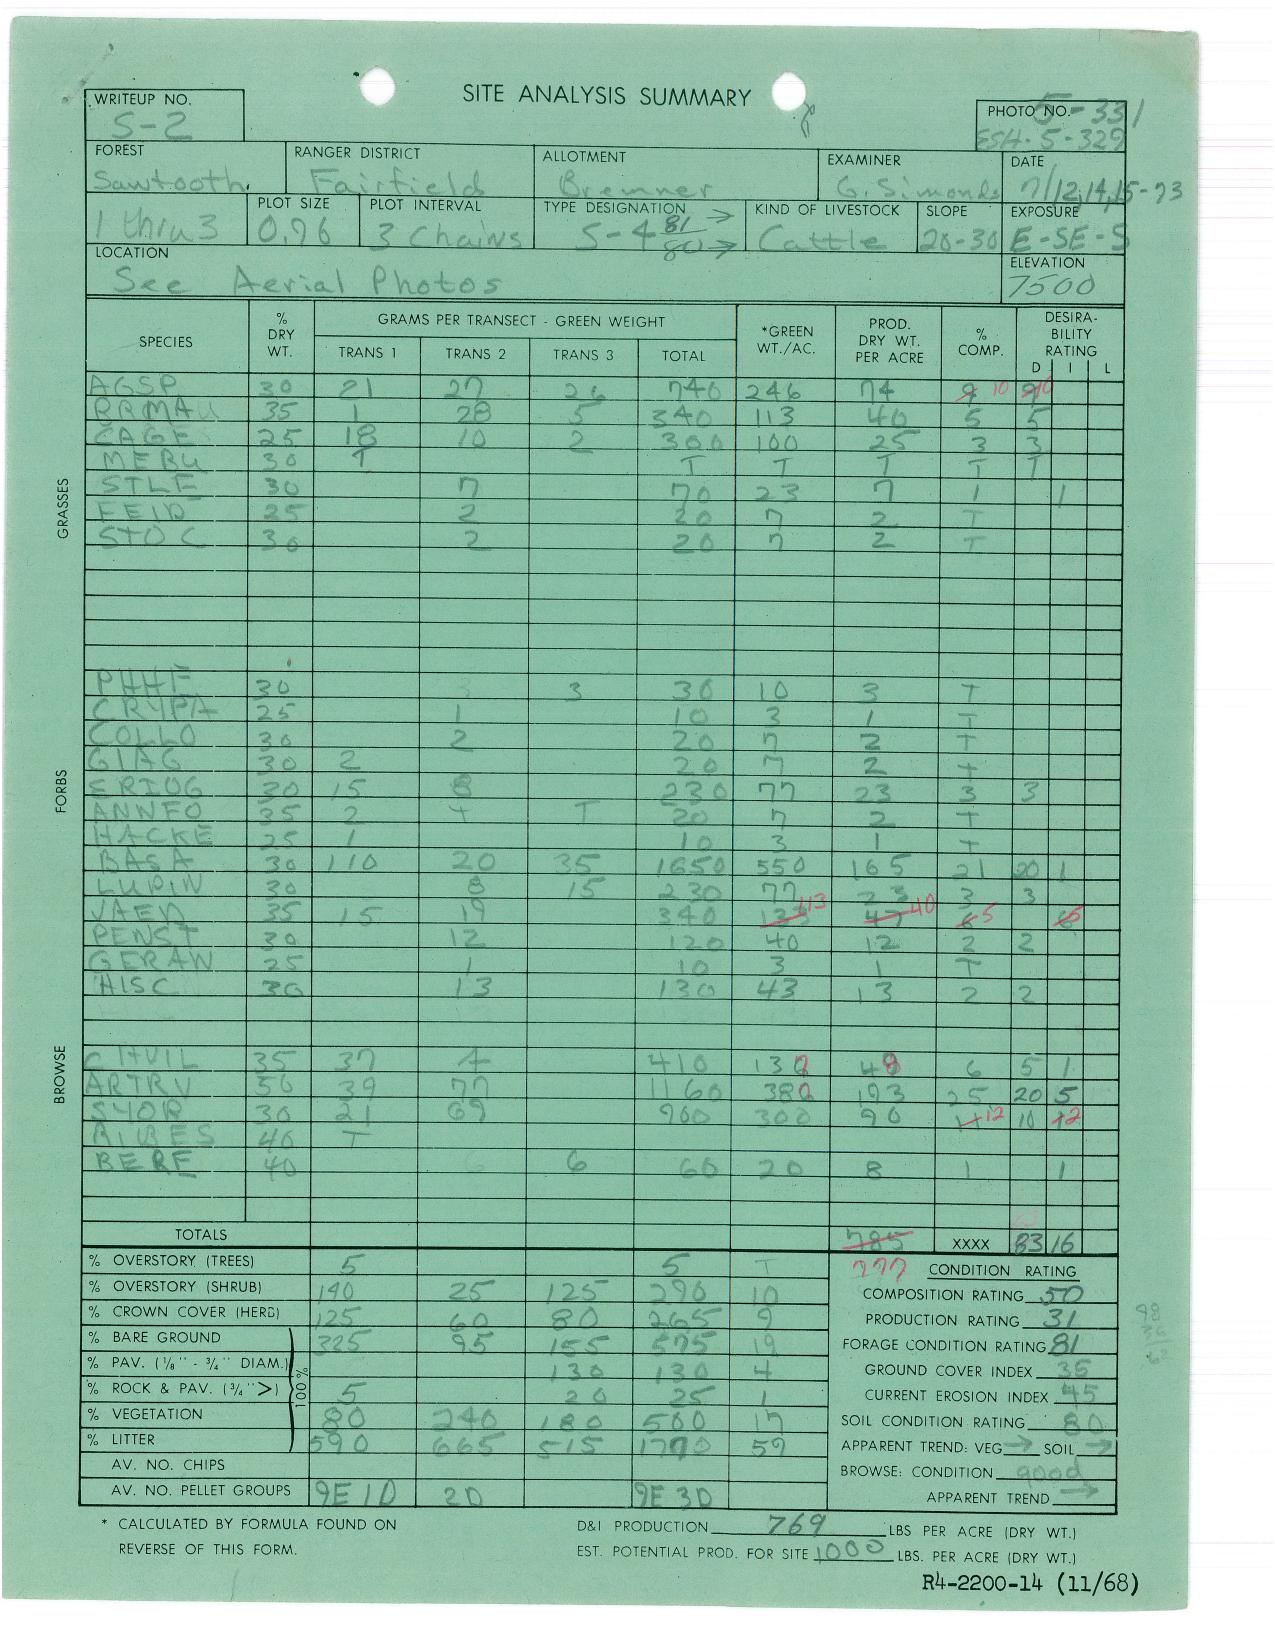 SITE ANALYSIS SUMMARY
WRITEUP NO. S-2
PHOTO NO. 5-331
ESH-5-329
FOREST Sawtooth RANGER DISTRICT Fairfield ALLOTMENT Bremner EXAMINER G. Simonds DATE 7/12,14,15-73
1 thru 3 PLOT SIZE 0.96 PLOT INTERVAL 3 Chains TYPE DESIGNATION S-4 81 80 KIND OF LIVESTOCK Cattle SLOPE 20-30 EXPOSURE E-SE-S
LOCATION See Aerial Photos ELEVATION 7500
SPECIES % DRY WT. GRAMS PER TRANSECT - GREEN WEIGHT *GREEN WT./AC. PROD. DRY WT. PER ACRE % COMP. DESIRABILITY RATING
TRANS 1 TRANS 2 TRANS 3 TOTAL D I L
GRASSES
AGSP 30 21 27 26 740 246 74 9 10 9 10
BRMA 35 1 28 5 340 113 40 5 5
CAGE 25 18 10 2 300 100 25 3 3
MEBU 30 T T T T T T
STLE 30 7 70 23 7 1 1
FEID 25 2 20 7 2 T
STOC 30 2 20 7 2 T
FORBS
PHHE 30 3 30 10 3 T
CRYPA 25 1 10 3 1 T
COLLO 30 2 20 7 2 T
GIAG 30 2 20 7 2 T
ERIOG 30 15 8 230 77 23 3 3
ANNFO 35 2 T T 20 7 2 T
HACKE 25 1 10 3 1 T
BASA 30 110 20 35 1650 550 165 21 20 1
LUPIN 30 8 15 230 77 23 3 3
VAED 35 15 19 340 113 40 5
PENST 30 12 120 40 12 2 2
GERAN 25 1 10 3 1 T
HISC 30 13 130 43 13 2 2
BROWSE
CHVIL 35 37 4 410 137 48 6 5 1
ARTRV 50 39 77 1160 380 193 25 20 5
SYOR 30 21 69 900 300 90 11 12 10 +2
RIBES 40 T
BERE 40 6 60 20 8 1 1
TOTALS 785 XXXX 83 16
777
% OVERSTORY (TREES) 5 5 T
% OVERSTORY (SHRUB) 140 25 125 290 10
% CROWN COVER (HERB) 125 60 80 265 9
% BARE GROUND 325 95 155 575 19
% PAV. (1/8" - 3/4" DIAM.) 130 130 4
% ROCK & PAV. (3/4" >) 5 20 25 1
% VEGETATION 80 240 180 500 17
% LITTER 590 665 515 1770 59
100%
AV. NO. CHIPS
AV. NO. PELLET GROUPS 9E 1D 2D 9E 3D
CONDITION RATING
COMPOSITION RATING 50
PRODUCTION RATING 31
FORAGE CONDITION RATING 81
GROUND COVER INDEX 35
CURRENT EROSION INDEX 45
SOIL CONDITION RATING 80
APPARENT TREND: VEG → SOIL →
BROWSE: CONDITION good
APPARENT TREND →
* CALCULATED BY FORMULA FOUND ON
REVERSE OF THIS FORM.
D&I PRODUCTION 769 LBS PER ACRE (DRY WT.)
EST. POTENTIAL PROD. FOR SITE 1000 LBS. PER ACRE (DRY WT.)
R4-2200-14 (11/68)